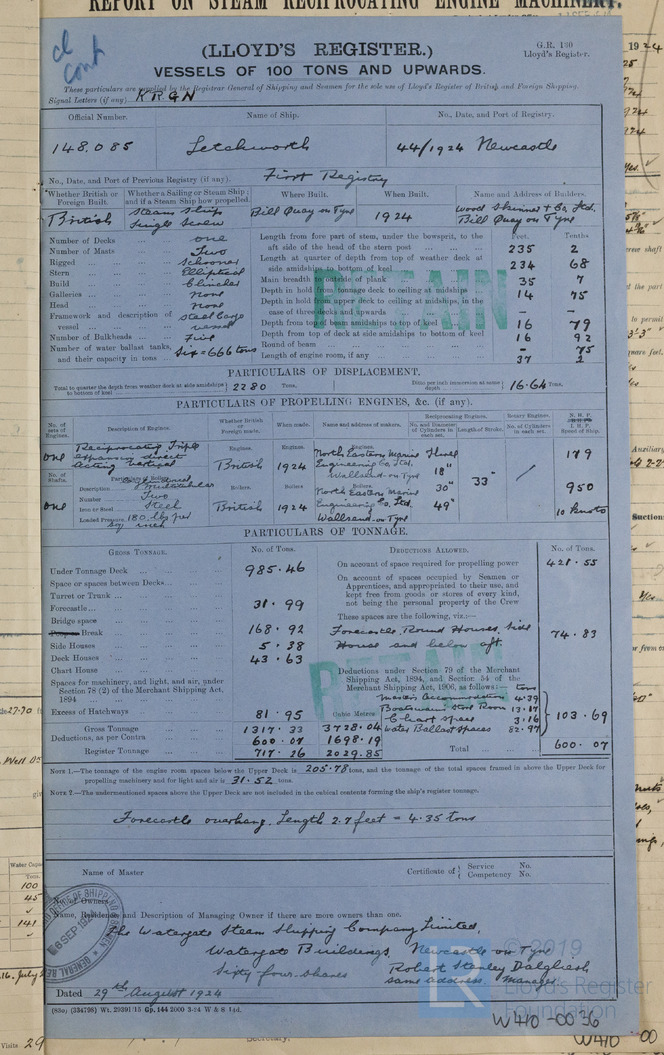 REPORT ON STEAM RECIPROCATING ENGINE MACHINERY.
cl
cont
(LLOYD'S REGISTER.)
G.R. 130
Lloyd's Register.
VESSELS OF 100 TONS AND UPWARDS.
These particulars are supplied by the Registrar General of Shipping and Seamen for the sole use of Lloyd's Register of British and Foreign Shipping.
Signal Letters (if any) KRGN
Official Number. Name of Ship. No., Date, and Port of Registry.
148,085 Letchworth 44/1924 Newcastle
No., Date, and Port of Previous Registry (if any). First Registry
Whether British or Foreign Built. Whether a Sailing or Steam Ship; and if a Steam Ship how propelled. Where Built. When Built. Name and Address of Builders.
British Steam Ship Single Screw Bill Quay on Tyne 1924 Wood Skinner & Co. Ltd. Bill Quay on Tyne
Feet. Tenths
Number of Decks one
Number of Masts Two
Rigged Schooner
Stern Elliptical
Build Clincher
Galleries None
Head None
Framework and description of vessel Steel Cargo vessel
Number of Bulkheads Five
Number of water ballast tanks, and their capacity in tons Six = 666 tons
Length from fore part of stem, under the bowsprit, to the aft side of the head of the stern post 235 2
Length at quarter of depth from top of weather deck at side amidships to bottom of keel 234 68
Main breadth to outside of plank 35 7
Depth in hold from tonnage deck to ceiling at midships 14 75
Depth in hold from upper deck to ceiling at midships, in the case of three decks and upwards - -
Depth from top of beam amidships to top of keel 16 79
Depth from top of deck amidships to bottom of keel 16 92
Round of beam - 75
Length of engine room, if any 37 2
RETAIN
PARTICULARS OF DISPLACEMENT.
Total to quarter the depth from weather deck at side amidships to bottom of keel 2280 Tons. Ditto per inch immersion at same depth 16.64 Tons.
PARTICULARS OF PROPELLING ENGINES, &c. (if any).
No. of sets of Engines. Description of Engines. Whether British or Foreign made. When made. Name and address of makers. Reciprocating Engines. No. and Diameter of Cylinders in each set. Length of Stroke. Rotary Engines. No. of Cylinders in each set. N.H.P. I.H.P. Speed of Ship.
one Reciprocating Triple expansion direct acting vertical British 1924 North Eastern Marine Engineering Co. Ltd. Wallsend-on-Tyne Three 18" 33" 179
No. of Shafts. Description Number Two Iron or Steel Steel Loaded Pressure 180 lbs per sq inch
one British 1924 North Eastern Marine Engineering Co. Ltd. Wallsend-on-Tyne 30" 49" 950 10 Knots
PARTICULARS OF TONNAGE.
GROSS TONNAGE. No. of Tons. DEDUCTIONS ALLOWED. No. of Tons.
Under Tonnage Deck 985.46
Space or spaces between Decks
Turret or Trunk
Forecastle 31.99
Bridge space
Break 168.92
Side Houses 5.38
Deck Houses 43.63
Chart House
Spaces for machinery, and light, and air, under Section 78 (2) of the Merchant Shipping Act, 1894
Excess of Hatchways 81.95
Cubic Metres
Gross Tonnage 1317.33 3728.04
Deductions, as per Contra 600.07 1698.19
Register Tonnage 717.26 2029.85
On account of space required for propelling power 421.55
On account of spaces occupied by Seamen or Apprentices, and appropriated to their use, and kept free from goods or stores of every kind, not being the personal property of the Crew
These spaces are the following, viz.:—
Forecastle, Round Houses, Side Houses and below aft. 74.83
Deductions under Section 79 of the Merchant Shipping Act, 1894, and Section 54 of the Merchant Shipping Act, 1906, as follows: tons
Masters Accommodation 4.39
Boatswains Store Room 13.17
Chart space 3.16
Water Ballast Spaces 82.97
103.69
Total 600.07
RETAIN
NOTE 1.—The tonnage of the engine room spaces below the Upper Deck is 205.78 tons, and the tonnage of the total spaces framed in above the Upper Deck for propelling machinery and for light and air is 31.52 tons.
NOTE 2.—The undermentioned spaces above the Upper Deck are not included in the cubical contents forming the ship's register tonnage.
Forecastle overhang. Length 2.7 feet = 4.35 tons
Name of Master Certificate of { Service No. Competency No.
Name, Residence, and Description of Managing Owner if there are more owners than one.
The Watergate Steam Shipping Company Limited,
Watergate Buildings, Newcastle on Tyne
Sixty four shares Robert Stanley Dalgliesh
same address. Manager.
Dated 29th August 1924
(83o) (334798) Wt. 29391/15 Gp. 144 2000 3-24 W & S Ltd.
© 2019
LR Lloyd's Register
Foundation
W410-0036
W410 00
Visits 29
Secretary.